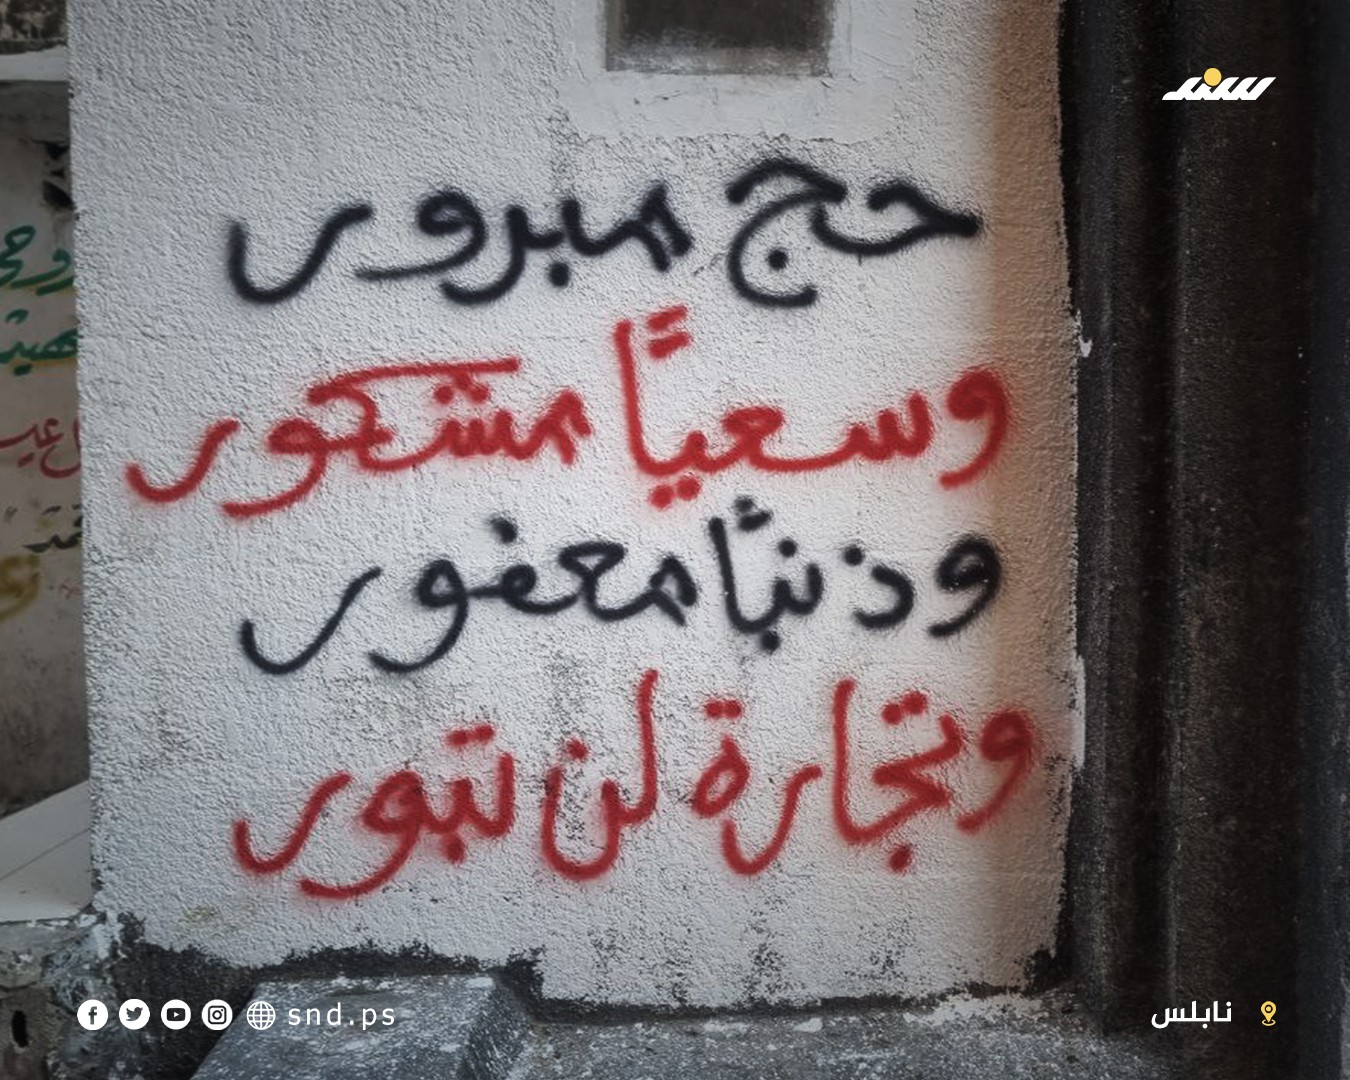 سند
حج مبرور
وسعيًا مشكور
وذنبًا مغفور
وتجارة لن تبور
snd.ps
نابلس